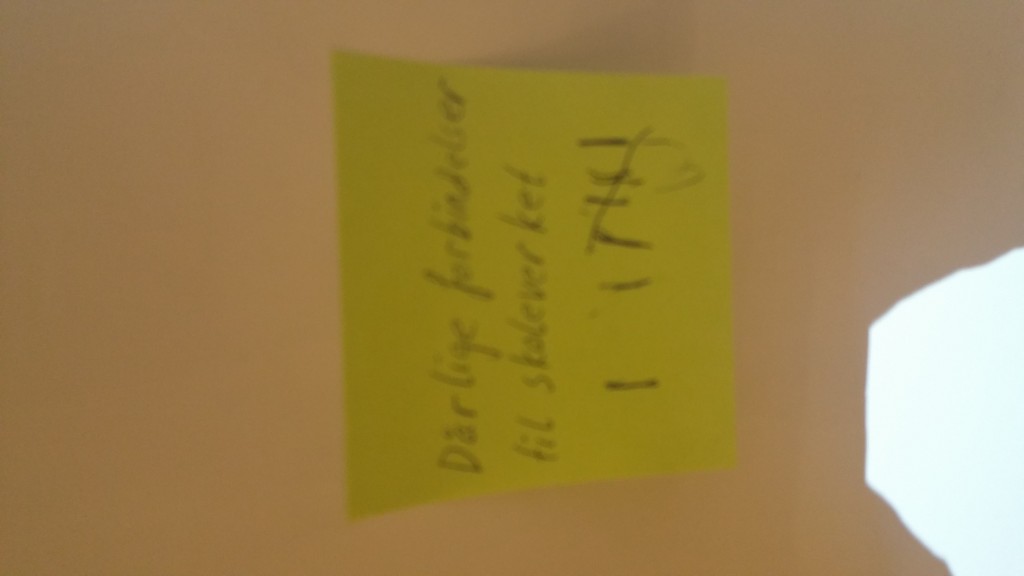 Dårlige forbindelser
til skoleverket